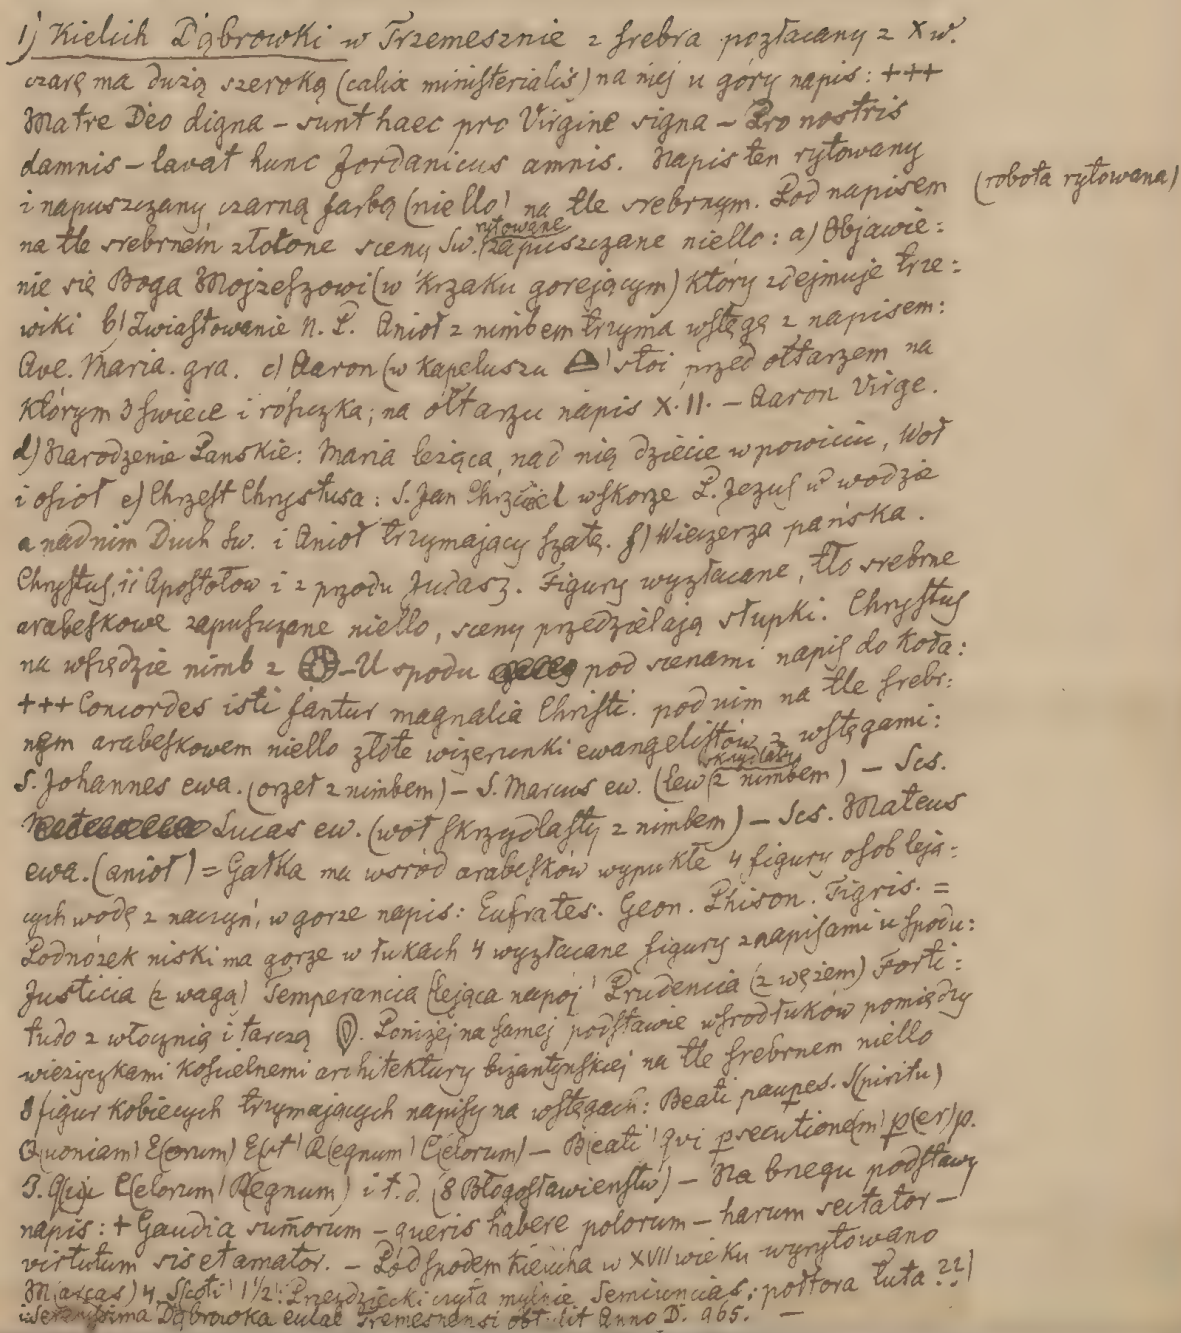 1) Kielich Dąbrowki w Trzemesznie z srebra pozłacany z X w.
czarę ma dużą szeroką (calix ministerialis) na niej u góry napis: +++
Matre Deo digna – sunt haec pro Virgine signa – Pro nostris
damnis – lavat hunc Jordanicus amnis. Napis ten rytowany
i napuszczany czarną farbą (niello) na tle srebrnym. Pod napisem (robota rytowana)
rytowane
na tle srebrnem złotone sceny św. zapuszczane niello: a) Objawie:
nie się Boga Mojzeszowi (w krzaku gorejącym) który zdejmuje trze:
wiki b) Zwiastowanie N. P. Anioł z nimbem trzyma wstęgę z napisem:
Ave. Maria. gra. c) Aaron (w kapeluszu ) stoi przed ołtarzem na
którym 3 swiece i rószczka; na ołtarzu napis X. II. – Aaron Virge.
d) Narodzenie Panskie: Maria leżąca, nad nią dziecie w powiciu, Woł
i osioł e) Chrzest Chrystusa: S. Jan Chrzciciel w skorze P. Jezus w wodzie
a nad nim Duch Św. i Anioł trzymający szatę. f) Wieczerza pańska.
Chrystus, 11 Apostołow i z przodu Judasz. Figury wyzłacane, tło srebrne
arabeskowe zapuszczane niello, sceny przedzielają słupki. Chrystus
na wszędzie nimb z – U spodu pod scenami napis do koła:
+++ Concordes isti fantur magnalia Christi. pod nim na tle srebr:
nym arabeskowem niello złote wizerunki ewangelistów z wstęgami:
skrzydlaty
S. Johannes ewa. (orzeł z nimbem) – S. Marcus ew. (lew z nimbem) – Scs.
Lucas ew. (woł skrzydlasty z nimbem) – Scs. Mateus
ewa. (anioł) = Gałka ma wsród arabesków wypukłe 4 figury osob leją:
cych wodę z naczyń, w gorze napis: Eufrates. Geon. Phison. Tigris. =
Podnózek niski ma gorze w łukach 4 wyzłacane figury z napisami u spodu:
Justicia (z wagą) Temperancia (lejąca napój) Prudencia (z wężem) Forti:
tudo z włocznią i tarczą . Poniżej na samej podstawie wsrod łuków pomiędzy
wieżyczkami kościelnemi architektury bizantyńskiej na tle srebrnem niello
8 figur kobiecych trzymających napisy na wstęgach: Beati paupes. S(piritu)
Q(uoniam) E(orum) E(st) R(egnum) C(elorum) – B(eati) qvi psecutione(m) p(er)p.
J. Q(ui) C(elorum) R(egnum) i t. d. (8 Błogosławieństw) – Na brzegu podstawy
napis: + Gaudia sumorum – queris habere polorum – harum sectator –
virtutum sis et amator. – Pod spodem kielicha w XVII wieku wyrytowano
M(arcas) 4 Scoti 1 1/2 : Przezdziecki czyta mylnie Semiuncias; połtora łuta ??)
Serenissima Dąbrowka Tremesnensi Anno D. 965. –